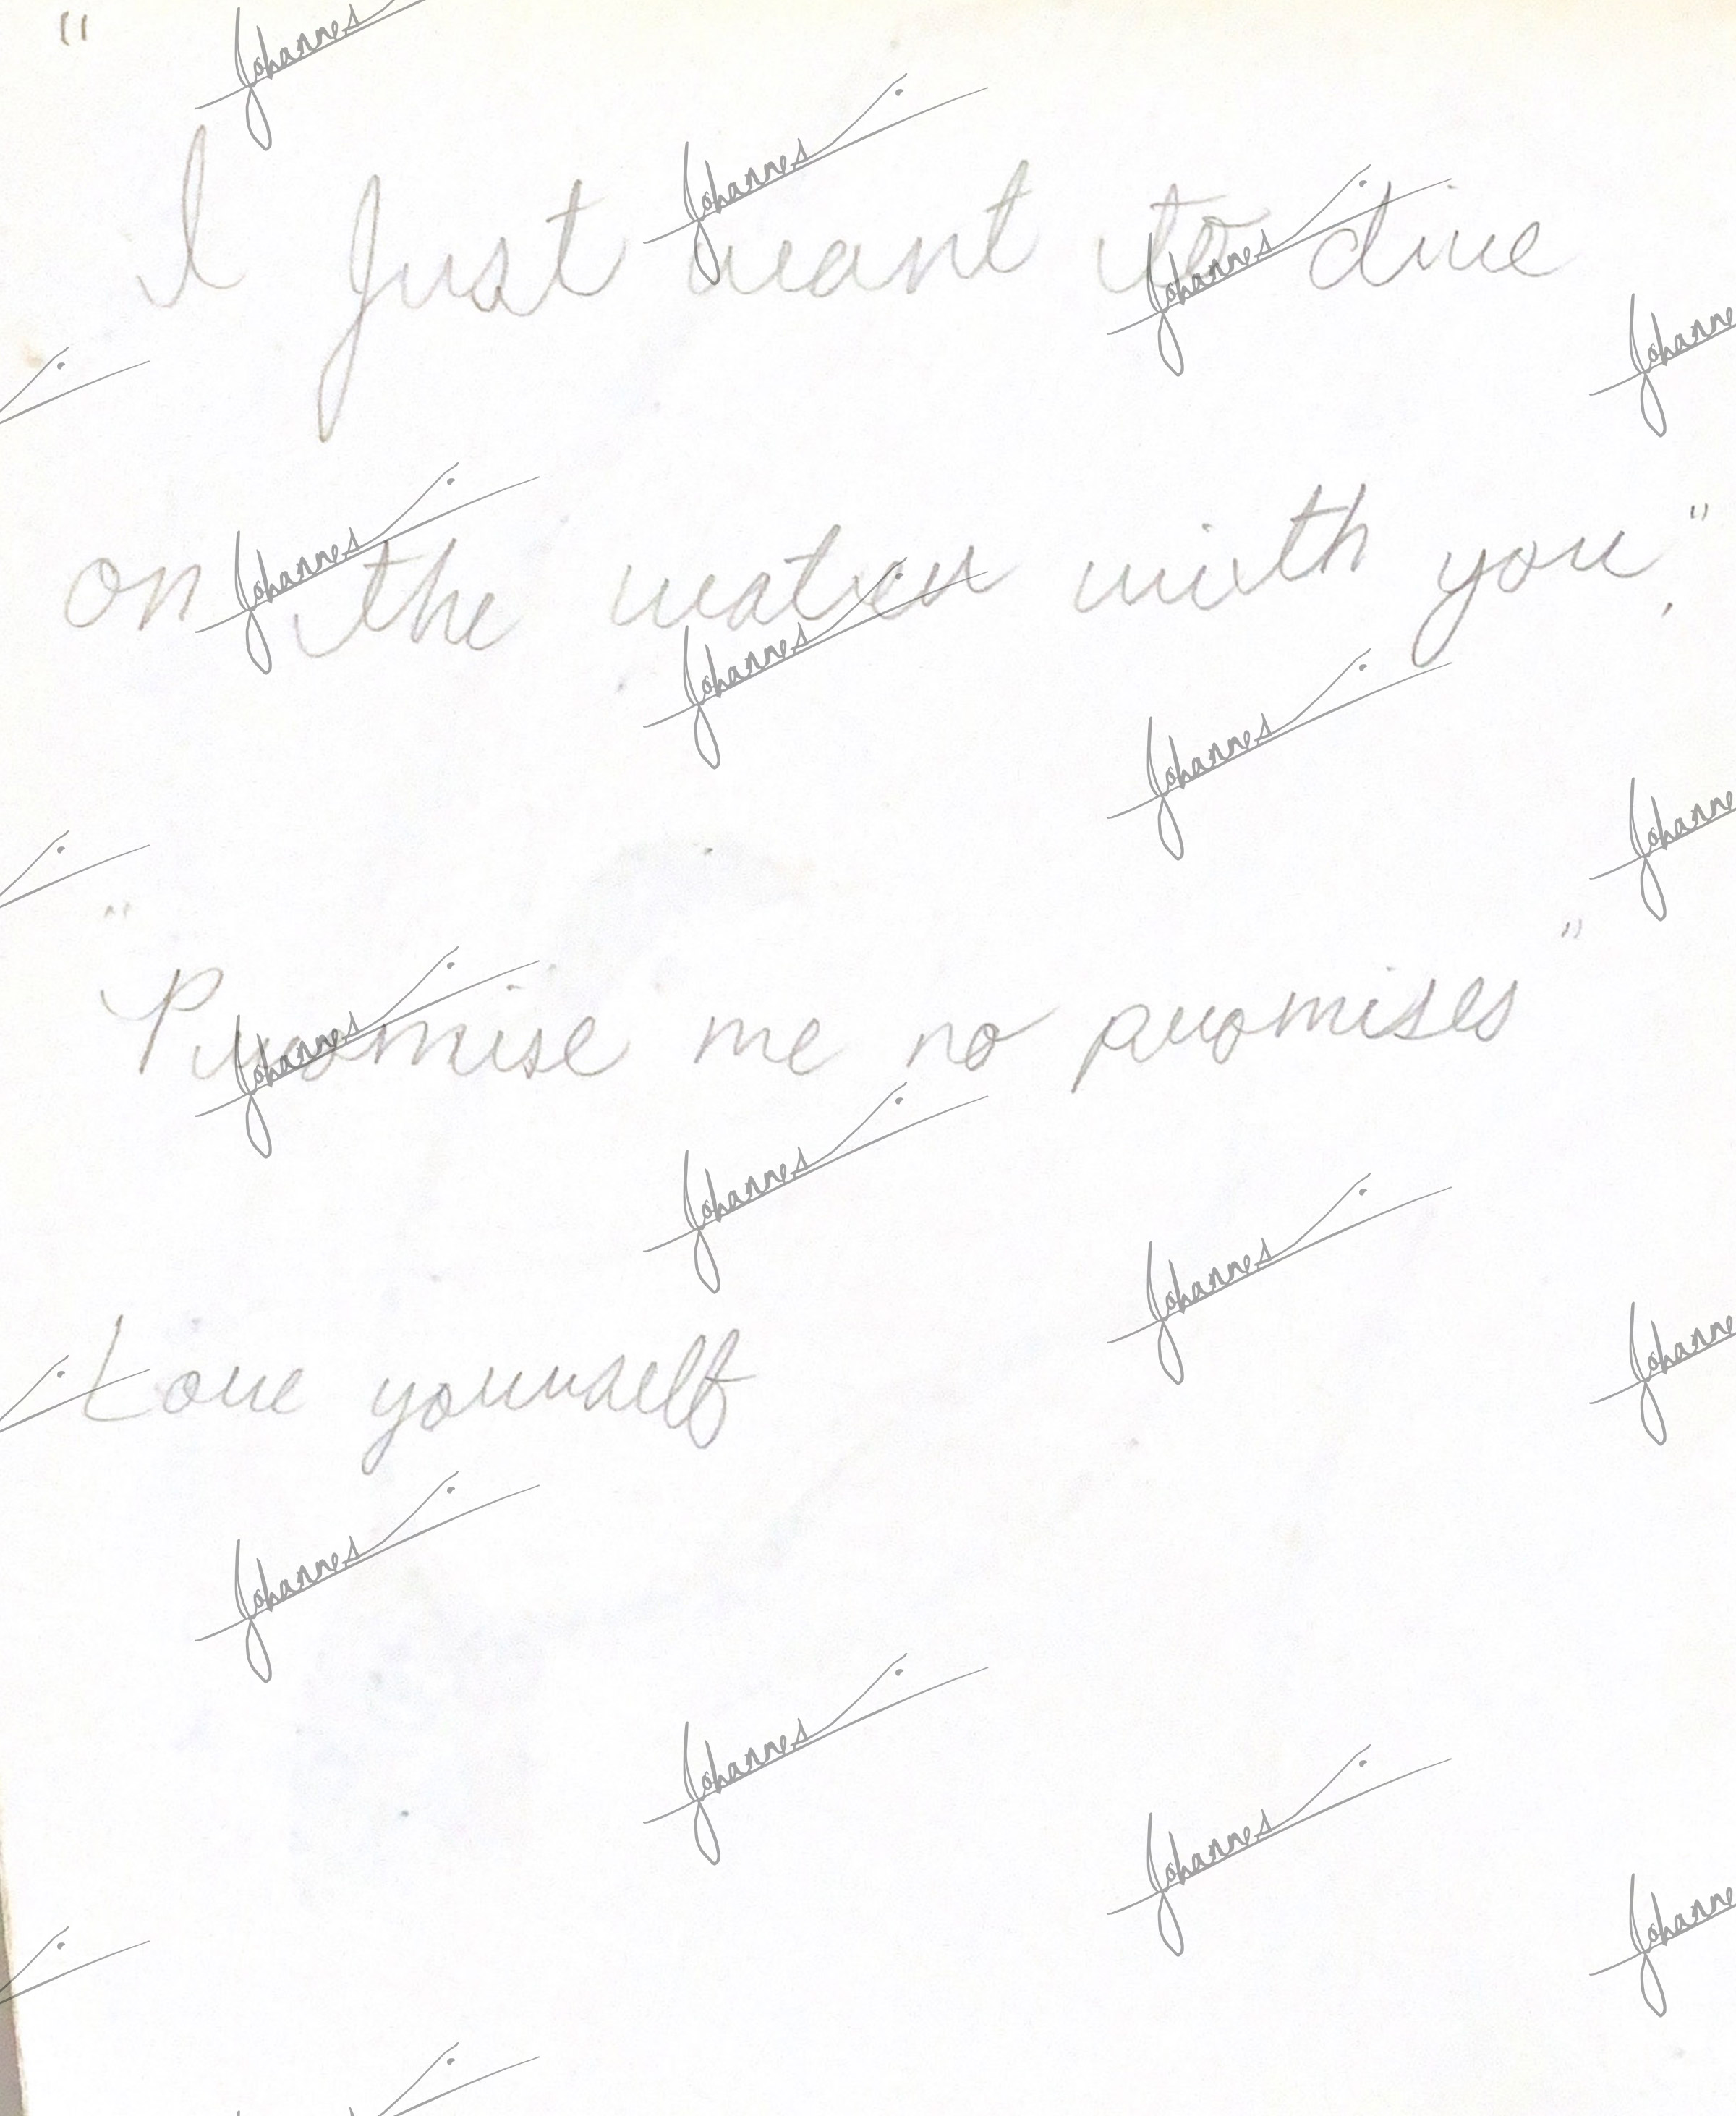 "
I Just want to dive
on the water with you."
"Promise me no promises"
Love yourself
Johannes
Johannes
Johannes
Johannes
Johannes
Johannes
Johannes
Johannes
Johannes
Johannes
Johannes
Johannes
Johannes